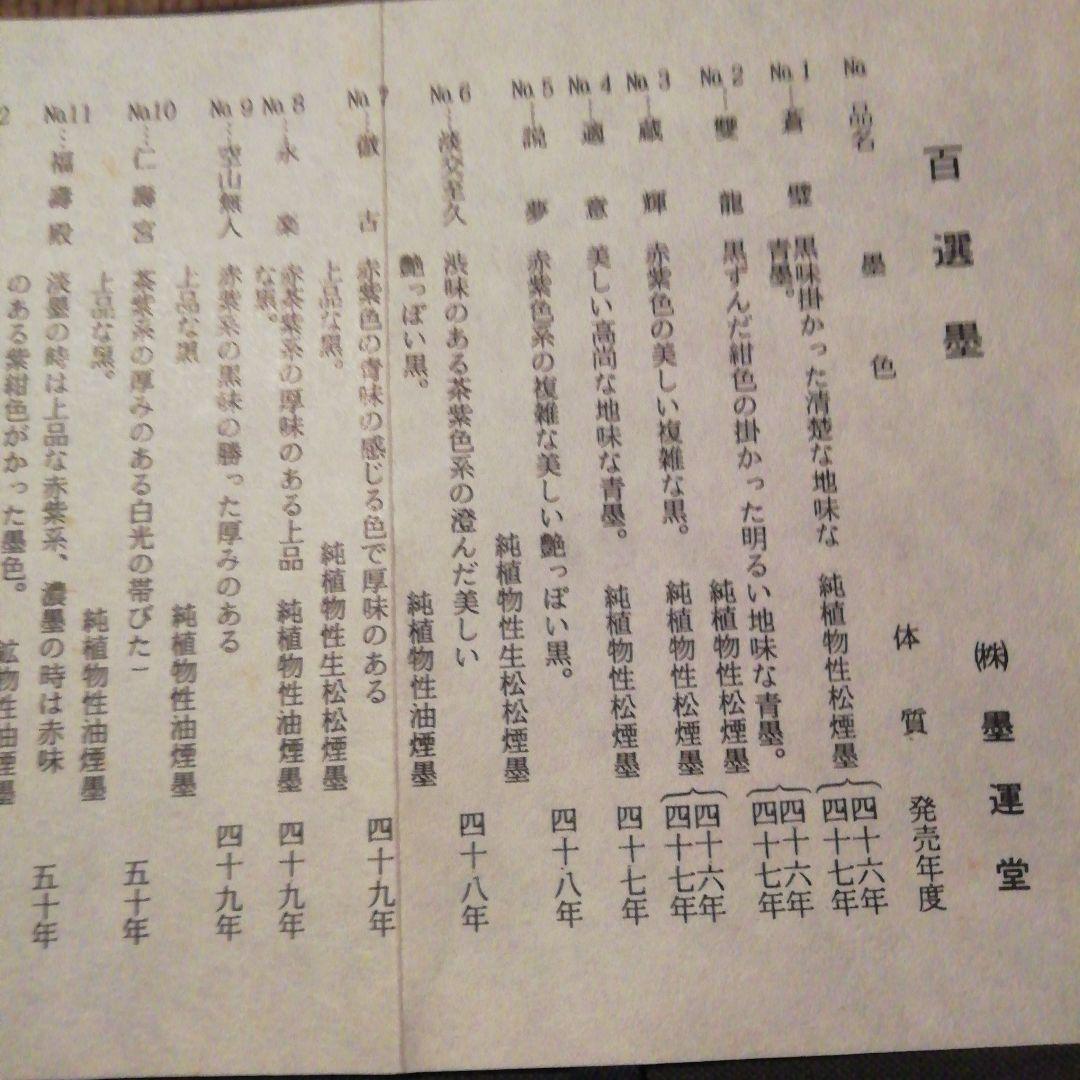 百選墨 ㈱墨運堂
No 品名 墨色 体質 発売年度
No.1…蒼璧 黒味掛かった清楚な地味な 純植物性松煙墨 四十六年
青墨。 四十七年
No.2…雙龍 黒ずんだ紺色の掛かった明るい地味な青墨。 四十六年
純植物性松煙墨 四十七年
No.3…蔵輝 赤紫色の美しい複雑な黒。 純植物性松煙墨 四十六年
四十七年
No.4…適意 美しい高尚な地味な青墨。 純植物性松煙墨 四十七年
No.5…説夢 赤紫色系の複雑な美しい艶っぽい黒。 四十八年
純植物性生松松煙墨
No.6…淡交至久 渋味のある茶紫色系の澄んだ美しい 四十八年
艶っぽい黒。 純植物性油煙墨
No.7…倣古 赤紫色の青味の感じる色で厚味のある 四十九年
上品な黒。 純植物性生松松煙墨
No.8…永楽 赤茶紫系の厚味のある上品 純植物性油煙墨 四十九年
な黒。
No.9…空山無人 赤紫系の黒味の勝った厚みのある 四十九年
上品な黒 純植物性油煙墨
No.10…仁壽宮 茶紫系の厚みのある白光の帯びた 五十年
上品な黒。 純植物性油煙墨
No.11…福壽殿 淡墨の時は上品な赤紫系、濃墨の時は赤味 五十年
のある紫紺色がかった墨色。 鉱物性油煙墨
2